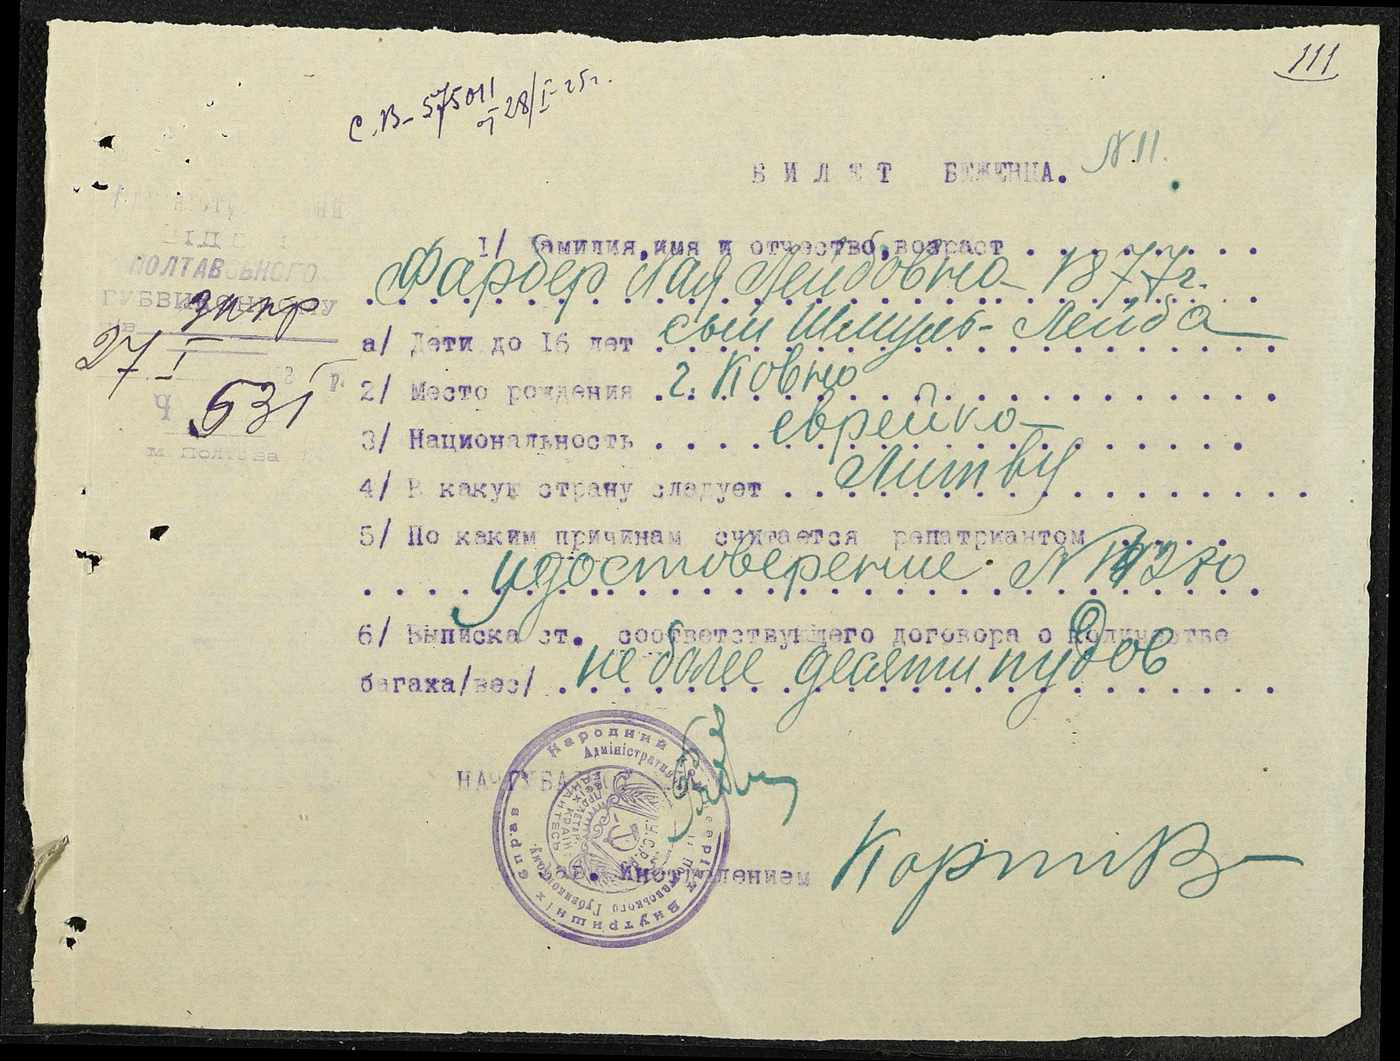 111
С.В- 575011
28/I-25г.
БИЛЕТ БЕЖЕНЦА. N.11.
ПОЛТАВСЬКОГО
ГУБВИКОНКОМУ
27 I 192 р.
Ч 531
м. Полтава
1/ Фамилия,имя и отчество,возраст . . . . . .
Фарбер Лая Лейбовна 1877г.
а/ Дети до 16 лет сын Шмуль-Лейба
2/ Место рождения г. Ковно
3/ Национальность еврейка
4/ В какую страну следует Литву
5/ По каким причинам считается репатриантом . . . .
удостоверение N
6/ Выписка ст. соответствующего договора о количестве
багажа/вес/ не более десяти пудов
НАЧГУБА
Зав. Иностделением
Народний Внутришніх справ
Адміністратив Полтавського Губвиконкому.
У.С.Р.Р.